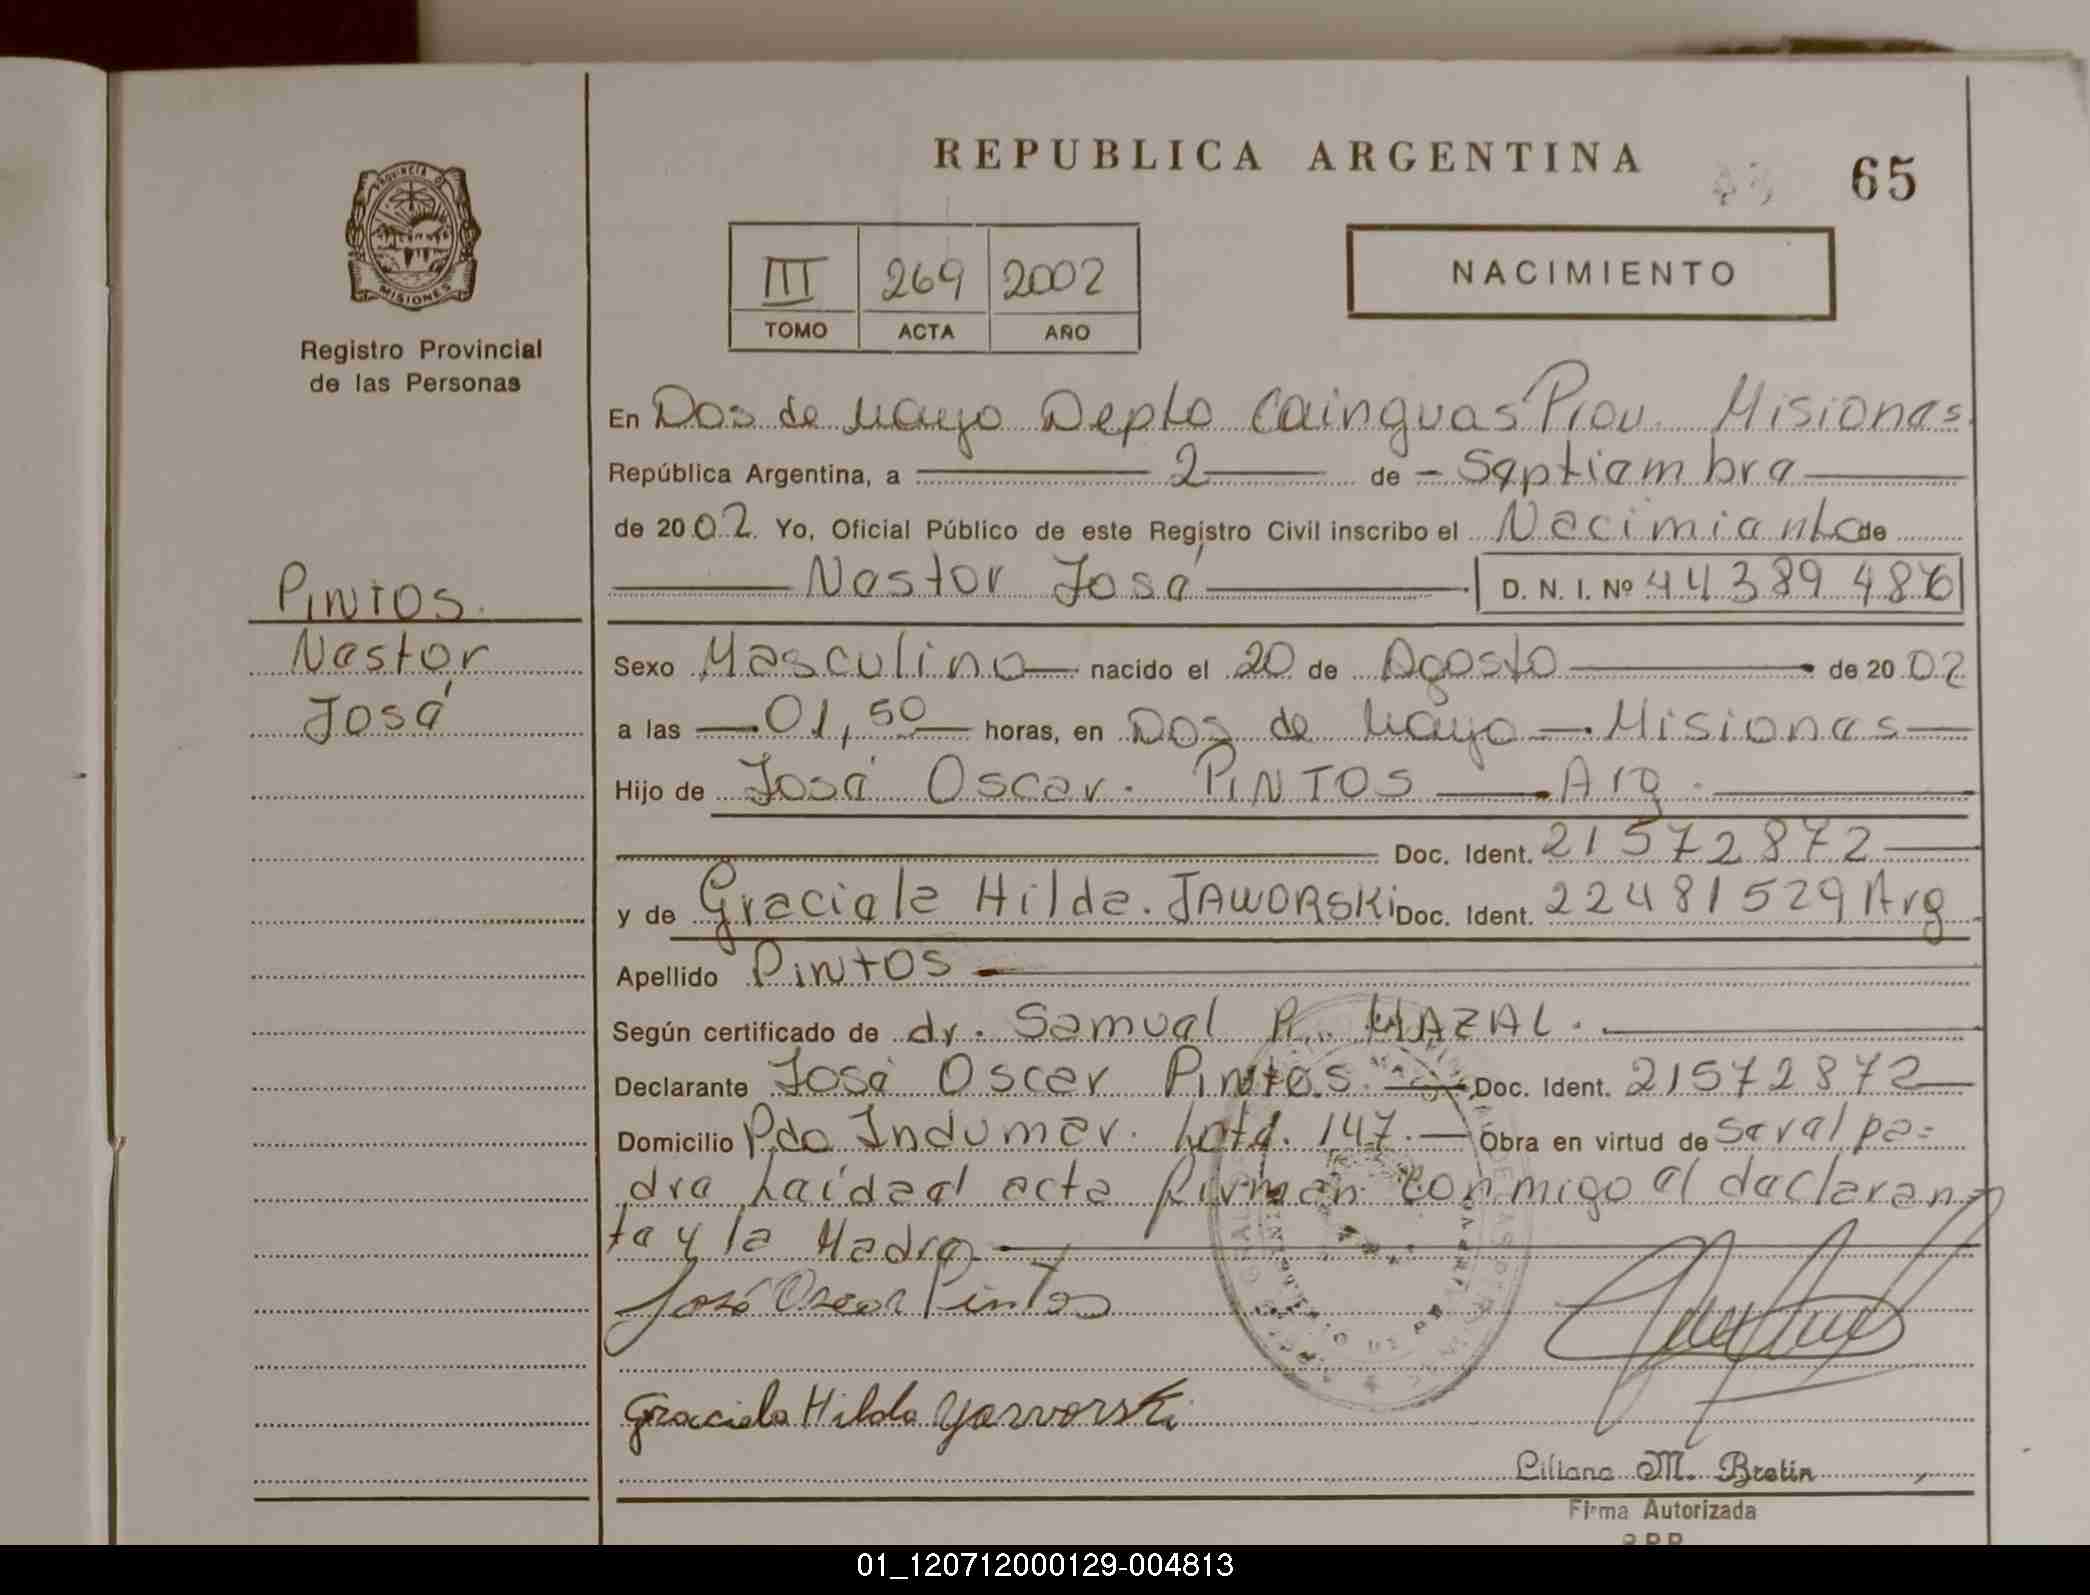 REPUBLICA ARGENTINA
65
PROVINCIA D
MISIONES
Registro Provincial
de las Personas
III 269 2002
TOMO ACTA AÑO
NACIMIENTO
En Dos de Mayo Depto Cainguas Prov. Misiones.
República Argentina, a 2 de Septiembre
de 2002. Yo, Oficial Público de este Registro Civil inscribo el Nacimiento de
Nestor José D. N. I. Nº 44389486
PINTOS.
Nestor
José
Sexo Masculino nacido el 20 de Agosto de 2002
a las 01,50 horas, en Dos de Mayo - Misiones
Hijo de José Oscar. PINTOS Arg.
Doc. Ident. 21572872
y de Graciela Hilda. JAWORSKI Doc. Ident. 22481529 Arg
Apellido Pintos
Según certificado de dr. Samuel MAZAL.
Declarante José Oscar Pintos Doc. Ident. 21572872
Domicilio Pdo Indumar. Lote. 147. Obra en virtud de ser el pa=
dre Leída el acta firman conmigo el declaran=
te y la Madre
José Oscar Pintos
Graciela Hilda Yarvorski
Liliana M. Bretin
Firma Autorizada
01_120712000129-004813